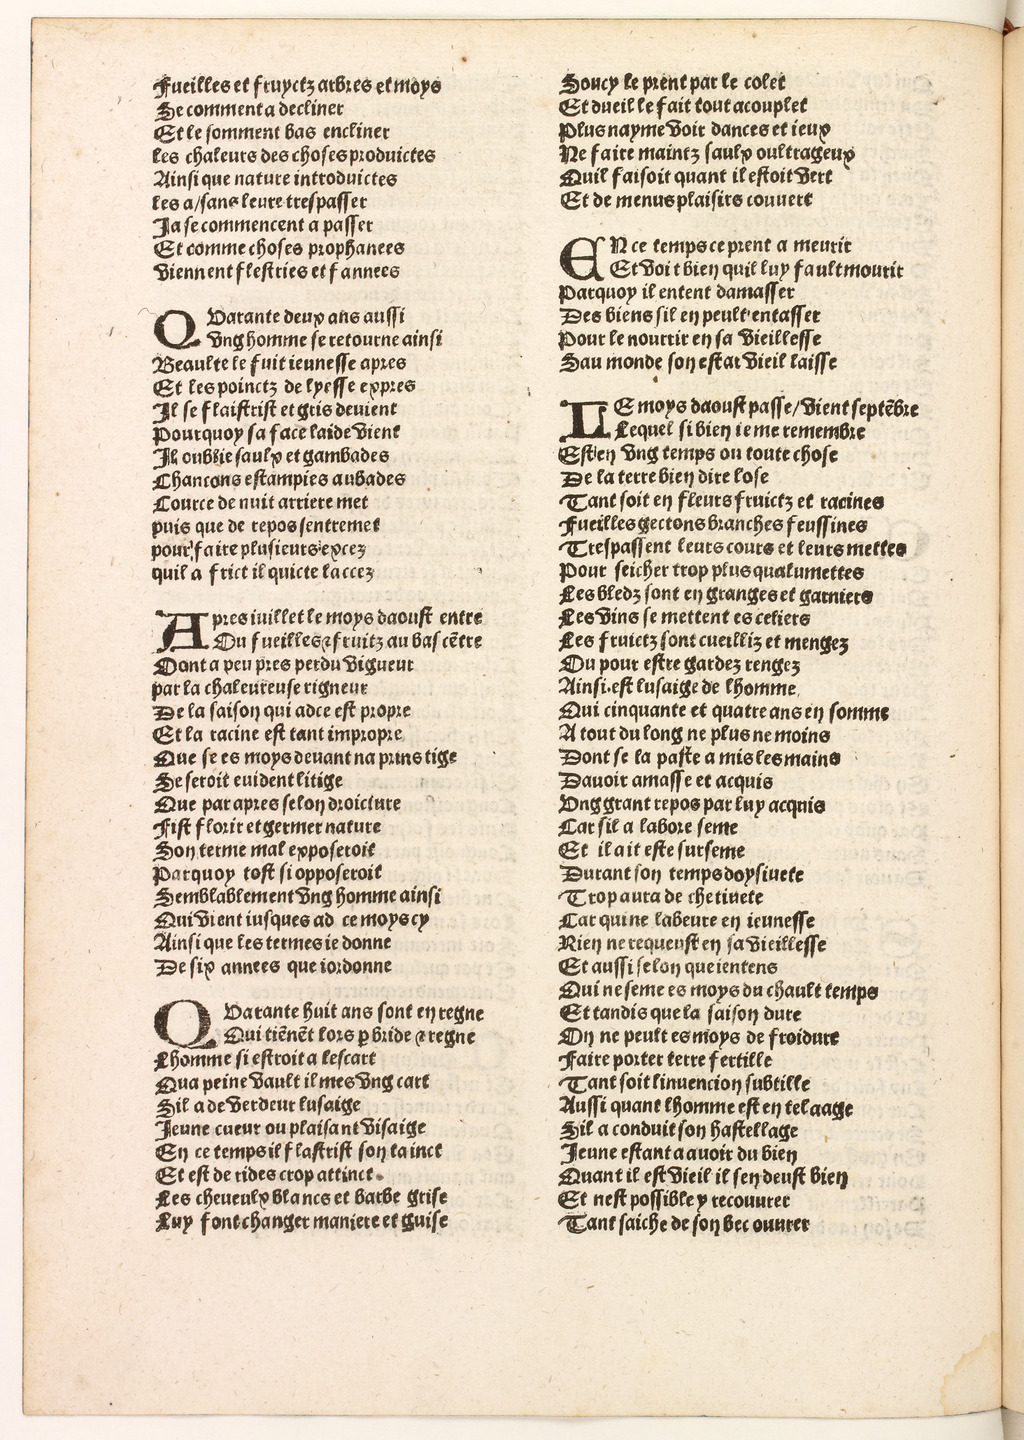 Fueilles et fruyctz arbres et moys
Se comment a decliner
Et le somment bas encliner
Les chaleurs des choses produictes
Ainsi que nature introduictes
Les a/sans leure trespasser
Ja se commencent a passer
Et comme choses prophanees
Viennent flestries et fannees
QVarante deux ans aussi
Vng homme se retourne ainsi
Beaulte le fuit ieunesse apres
Et les poinctz de lyesse expres
Il se flaistrist et gris deuient
Pourquoy sa face laide vient
Il oublie saulx et gambades
Chancons estampies aubades
Cource de nuit arriere met
puis que de repos sentremet
pour faire plusieurs excez
quil a frict il quicte laccez
Apres iuillet le moys daoust entre
Ou fueilles & fruitz au bas cētre
Dont a peu pres perdu vigueur
par la chaleureuse rigueur
De la saison qui adce est propre
Et la racine est tant impropre
Que se es moys deuant na prins tige
Se seroit euident litige
Que par apres selon droicture
Fist florir et germer nature
Son terme mal exposeroit
Parquoy tost si opposeroit
Semblablement vng homme ainsi
Qui vient iusques ad ce moys cy
Ainsi que les termes ie donne
De six annees que iordonne
QVarante huit ans sont en regne
Qui tiēnēt lors ꝑ bride & regne
Lhomme si estroit a lescart
Qua peine vault il mes vng cart
Sil a de verdeur lusaige
Jeune cueur ou plaisant visaige
En ce temps il flastrist son tainct
Et est de rides crop attinct
Les cheueulx blancs et barbe grise
Luy font changer maniere et guise
Soucy le prent par le colet
Et dueil le fait tout acouplet
Plus nayme voir dances et ieux
Ne faire maintz saulx oultrageux
Quil faisoit quant il estoit vert
Et de menus plaisirs couuert
EN ce temps ce prent a meurir
Et voit bien quil luy fault mourir
Parquoy il entent damasser
Des biens sil en peult entasser
Pour le nourrir en sa vieillesse
Sau monde son estat vieil laisse
LE moys daoust passe/vient septēbre
Lequel si bien ie me remembre
Est en vng temps ou toute chose
De la terre bien dire lose
Tant soit en fleurs fruictz et racines
Fueilles gectons branches feussines
Trespassent leurs cours et leurs mettes
Pour seicher trop plus qualumettes
Les bledz sont en granges et garniers
Les vins se mettent es celiers
Les fruictz sont cueilliz et mengez
Ou pour estre gardez rengez
Ainsi est lusaige de lhomme
Qui cinquante et quatre ans en somme
A tout du long ne plus ne moins
Dont se la paste a mis les mains
Dauoir amasse et acquis
Vng grant repos par luy acquis
Car sil a labore seme
Et il ait este surseme
Durant son temps doysiuete
Trop aura de chetiuete
Car qui ne labeure en ieunesse
Rien ne requeust en sa vieillesse
Et aussi selon que ientens
Qui ne seme es moys du chault temps
Et tandis que la saison dure
On ne peult es moys de froidure
Faire porter terre fertille
Tant soit linuencion subtille
Aussi quant lhomme est en tel aage
Sil a conduit son hastellage
Jeune estant a auoir du bien
Quant il est vieil il sen deust bien
Et nest possible y recouurer
Tant saiche de son bec ouurer